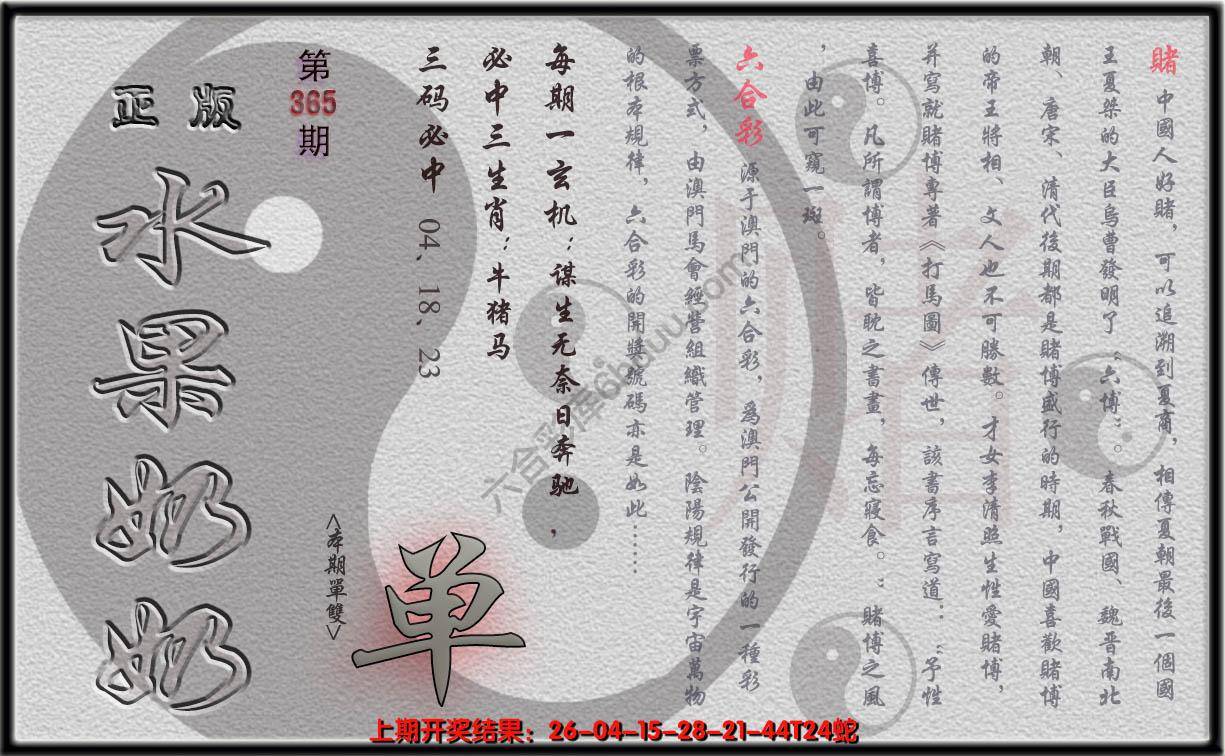 賭 中國人好賭，可以追溯到夏商，相傳夏朝最後一個國
王夏桀的大臣烏曹發明了“六博”。春秋戰國、魏晋南北
朝、唐宋、清代後期都是賭博盛行的時期，中國喜歡賭博
的帝王將相、文人也不可勝數。才女李清照生性愛賭博，
并寫就賭博專著《打馬圖》傳世，該書序言寫道：“予性
喜博。凡所謂博者，皆耽之晝晝，每忘寢食。”賭博之風
，由此可窺一斑。
六合彩 源于澳門的六合彩，爲澳門公開發行的一種彩
票方式，由澳門馬會經營組織管理。陰陽規律是宇宙萬物
的根本規律，六合彩的開獎號碼亦是如此……
每期一玄机：谋生无奈日奔驰，
必中三生肖：牛猪马
三码必中 04、18、23
第365期
<本期單雙>
单
正版
水果奶奶
六合彩库6huuu.com
上期开奖结果：26-04-15-28-21-44T24蛇